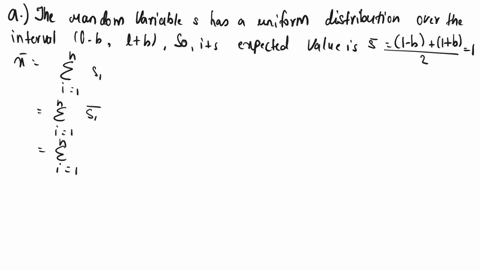 a.) The random variable s has a uniform distribution over the
interval (0-b, l+b), So, its expected value is s̄ = (1-b)+(1+b)/2 = 1
x̄ = n Σ i=1 s₁
= n Σ i=1 s̄₁
= n Σ i=1